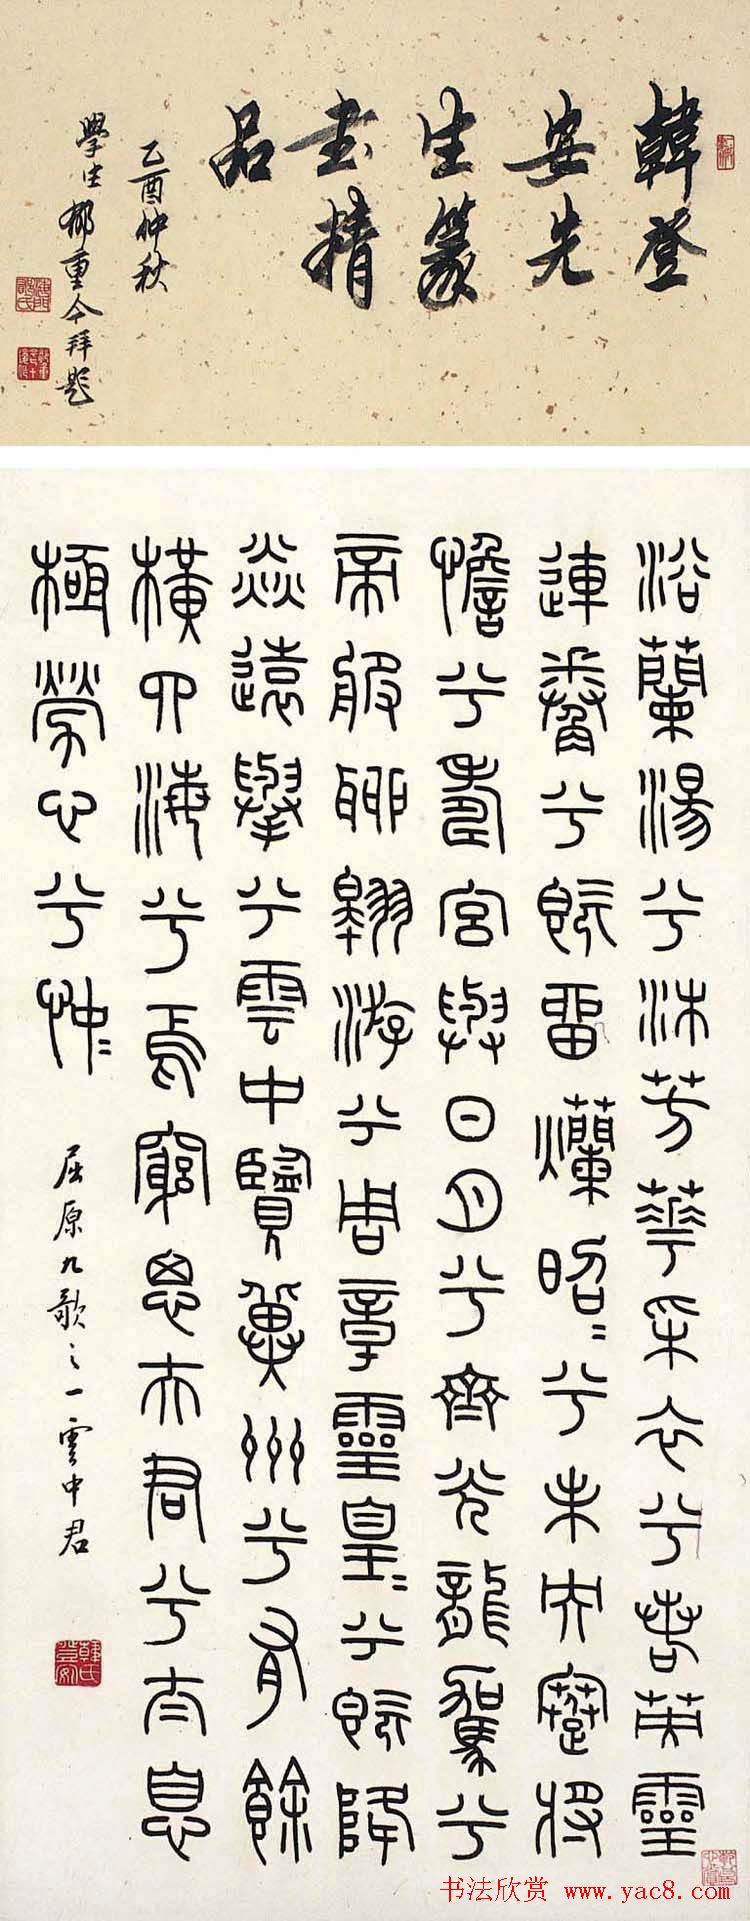 韓登
安先
生篆
書精
品
乙酉仲秋
學生郁重今拜題
浴蘭湯兮沐芳華采衣兮若英靈
連蜷兮既留爛昭〻兮未央蹇將
憺兮壽宮與日月兮齊光龍駕兮
帝服聊翱游兮周章靈皇〻兮既降
猋遠舉兮雲中覽冀州兮有餘
橫四海兮焉窮思夫君兮太息
極勞心兮忡〻
屈原九歌之一雲中君
韓氏登安
书法欣赏 www.yac8.com